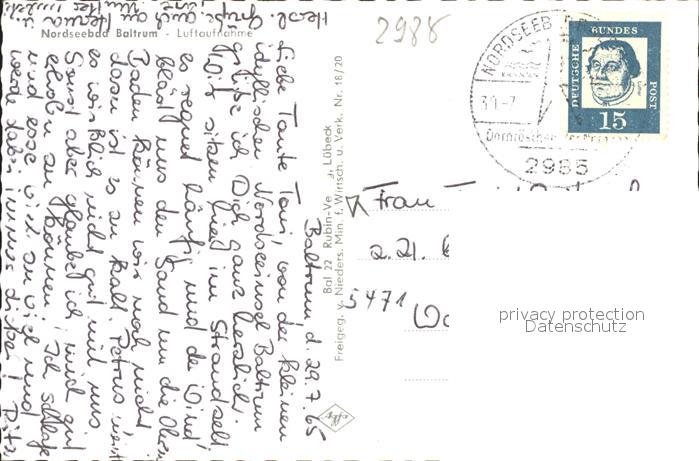 Nordseebad Baltrum - Luftaufnahme
2988
NORDSEEB
30.-7.
2985
DEUTSCHE BUNDESPOST
15
Bal 22 Rubin-Ve Lübeck
Freigeg. v. Nieders. Min. f. Wirtsch. u. Verk. Nr. 18/20
Baltrum d. 29.7.65
Liebe Tante Toni, von der kleinen
idyllischen Nordseeinsel Baltrum
grüße ich Dich ganz herzlich.
Wir sitzen hier im Strandzelt
es regnet häufig und der Wind
bläst uns den Sand um die Ohren
Baden können wir noch nicht
dazu ist es zu kalt. Petrus meint
es wirklich nicht gut mit uns
Sonst aber glaube ich, mich gut
erholen zu können. Ich schlafe
und esse viel zu viel und
werde dabei immer dicker!
Herzl. Grüße auch an
Frau
5471
privacy protection
Datenschutz